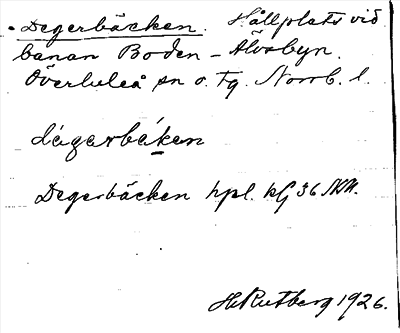 Degerbäcken. Hållplats vid
banan Boden - Älvsbyn.
Överluleå sn o. tg. Norrb. l.
dégarbäken
Degerbäcken hpl. kG 36
H. Rutberg 1926.